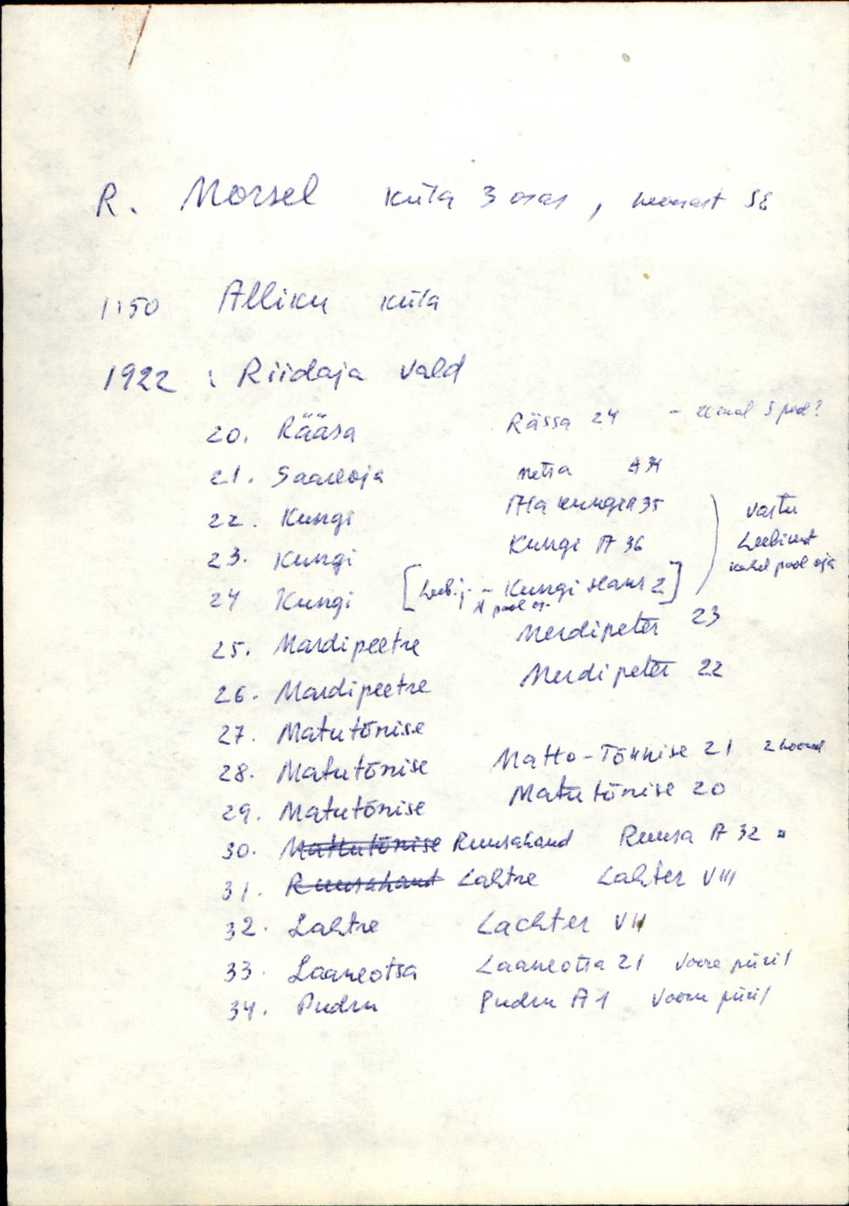 R. Morsel küla 3 osas, SE
1:50 Alliku küla
1922 : Riidaja vald
20. Rääsa Rässa 24
21. Saareoja metsa A 34
22. Kungi Alla Kungi A 35 vastu
23. Kungi Kungi A 36 Leebikut
24 Kungi [Leeb.j. - Kungi Hans 2] pool oja
25. Mardipeetre Merdipeter 23
26. Mardipeetre Merdipeter 22
27. Matutõnise
28. Matutõnise Matto-Tõnnise 21
29. Matutõnise Matutõnise 20
30. Mattutõnise Ruusahand Ruusa A 32
31. Ruusahand Lahtre Lahter VIII
32. Lahtre Lachter VII
33. Laaneotsa Laaneotsa 21 Voore piiril
34. Pudru Pudru A 1 Vooru piiril